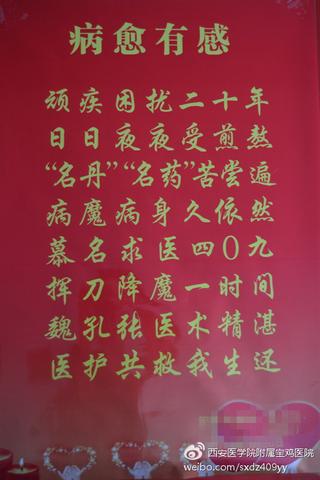 病愈有感
顽疾困扰二十年
日日夜夜受煎熬
“名丹”“名药”苦尝遍
病魔病身久依然
慕名求医四0九
挥刀降魔一时间
魏孔张医术精湛
医护共救我生还
西安医学院附属宝鸡医院
weibo.com/sxdz409yy